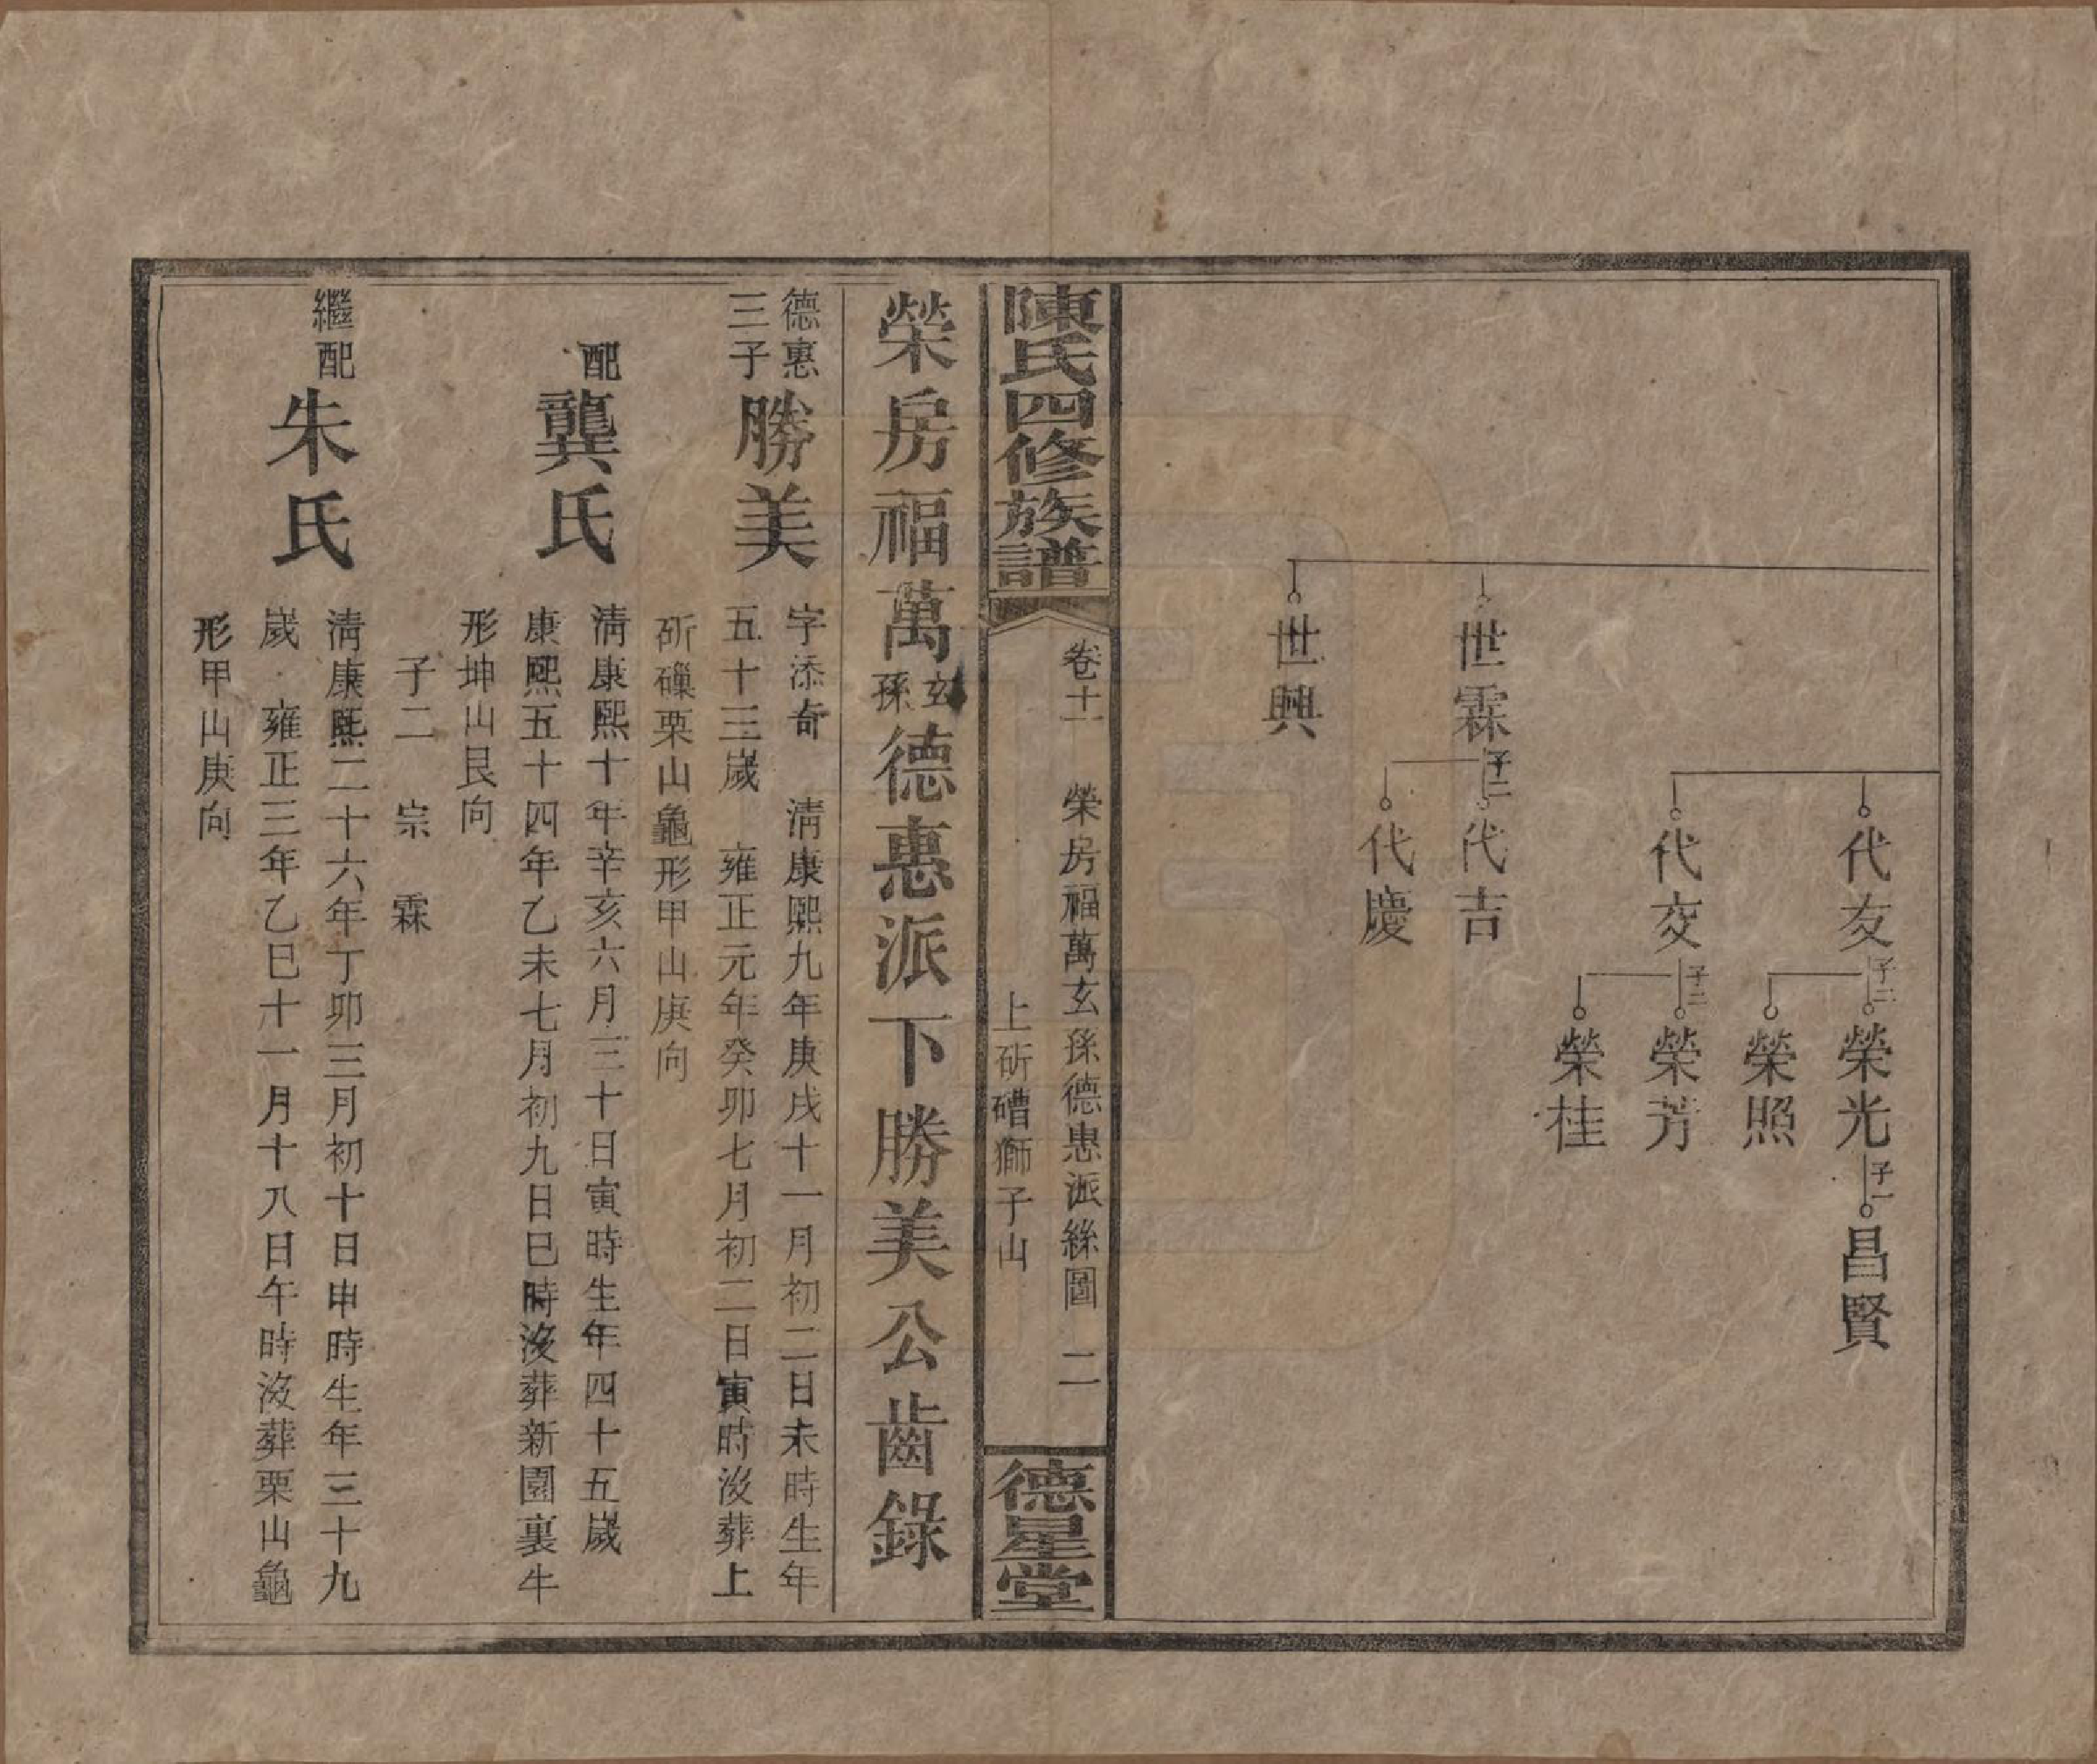 代友
子二
榮光
子一
昌賢
榮照
代交
子二
榮芳
榮桂
世霖
子二
代吉
代慶
世興
陳氏四修族譜
卷十一 榮房福萬玄孫德惠派絲圖 二
上斫磄獅子山
德星堂
榮房福萬玄孫德惠派下勝美公齒錄
德惠
三子
勝美
字添奇 清康熙九年庚戌十一月初二日未時生年
五十三歲 雍正元年癸卯七月初二日寅時沒葬上
斫磼栗山龜形甲山庚向
配
龔氏
清康熙十年辛亥六月三十日寅時生年四十五歲
康熙五十四年乙未七月初九日巳時沒葬新園裏牛
形坤山艮向
子二 宗 霖
繼配
朱氏
清康熙二十六年丁卯三月初十日申時生年三十九
歲 雍正三年乙巳十一月十八日午時沒葬栗山龜
形甲山庚向